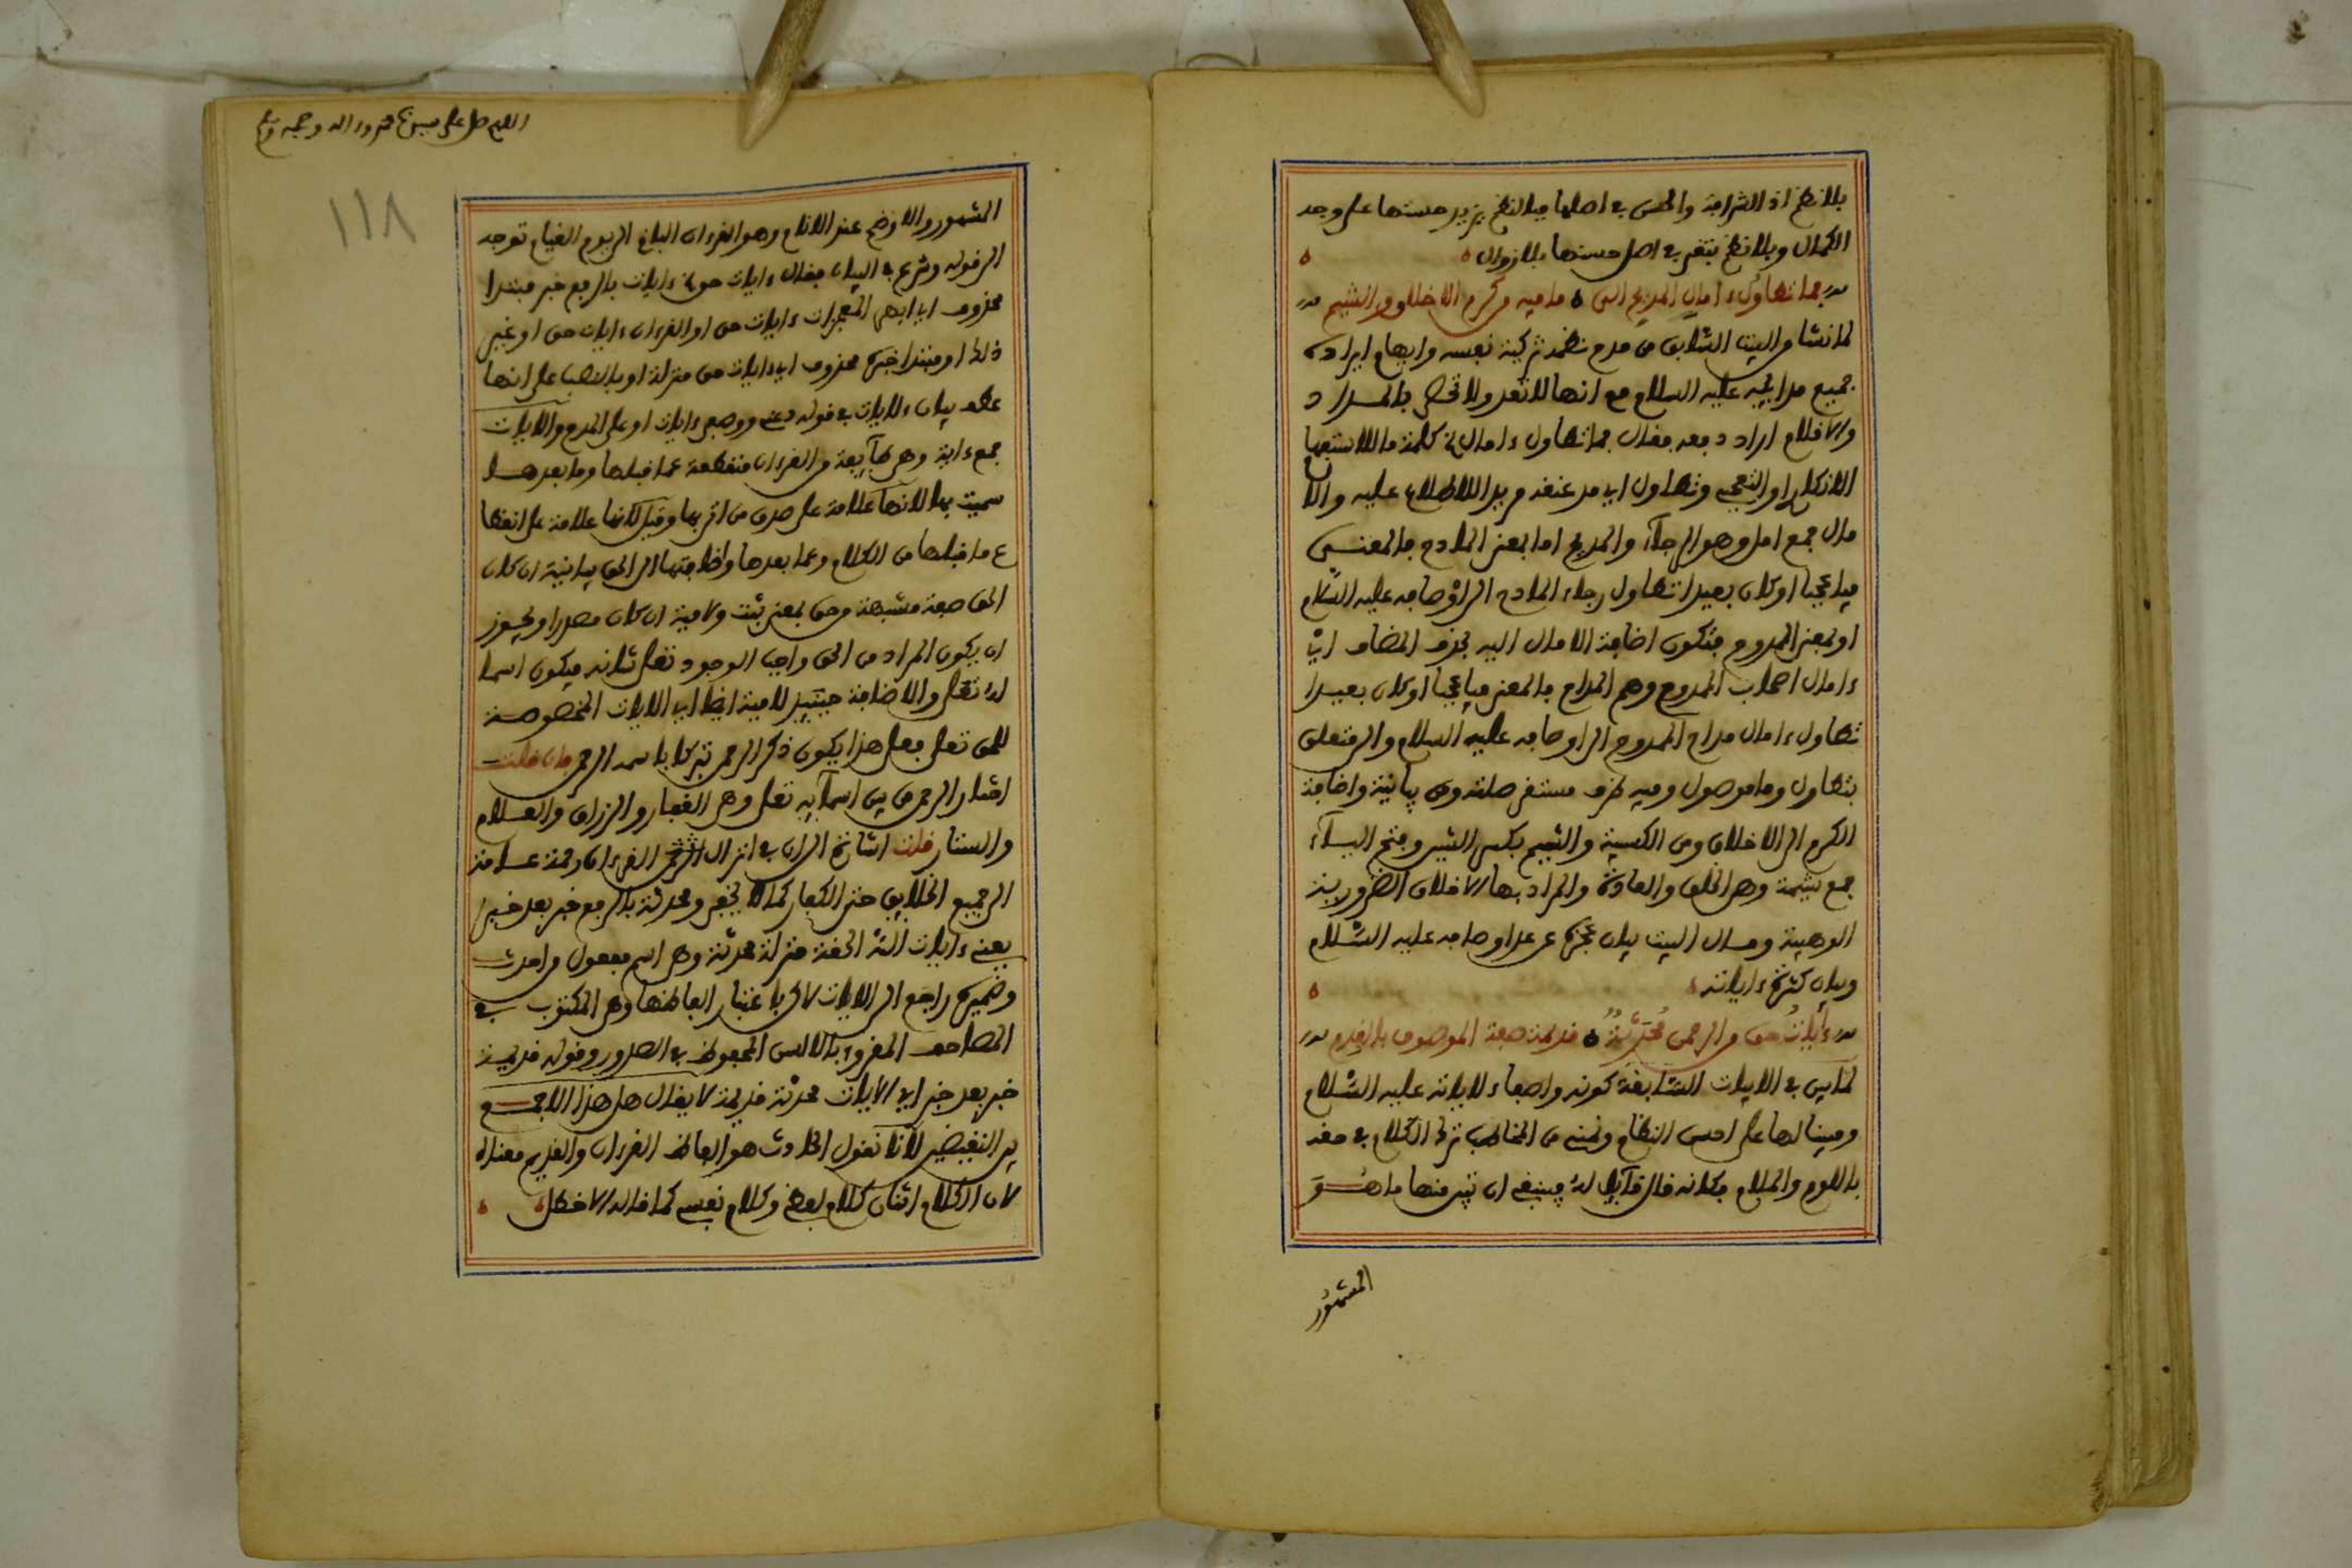 بلا نظم اذ الشرافة والحسن في اصلها فبالنظم يزيد حسنها على وجه
الكمال وبلا نظم يتقرر في اصل حسنها بلا زوال
فما تطاول ءامال المديح الى ه ما فيه من كرم الاخلاق والشيم
لما نشا من البيت السابق من مدح نظمه تزكية نفسه وايهام ايراده
جميع مدايحه عليه السلام مع انها لا تعد ولا تحصى بالمداد
والاقلام اراد دفعه فقال فما تطاول ءامال كلمة ما للاستفهام
الانكاري او التعجب وتطاول اي مد عنقه مريدا للاطلاع عليه والا
مال جمع امل وهو الرجاء والمديح اما بمعنى المادح فالمعنى
فيا عجبا او كان بعيدا تطاول رجاء المادح الى اوصافه عليه السلام
او بمعنى الممدوح فتكون اضافة الامال اليه بحذف المضاف اي
ءامال اصحاب الممدوح وهم المداح فالمعنى فيا عجبا او كان بعيدا
تطاول ءامال مداح الممدوح الى اوصافه عليه السلام والى متعلق
بتطاول وما موصول وفيه ظرف مستقر صلته ومن بيانية واضافة
الكرم الى الاخلاق ومن الكسبية والشيم بكسر الشين وفتح الياء
جمع شيمة وهي الخلق والعادة والمراد بها الاخلاق الضرورية
الوهبية ومآل البيت بيان عجزه عن عد اوصافه عليه السلام
وبيان كثرة ءاياته
ءايات حق من الرحمن محدثة ه قديمة صفة الموصوف بالقدم
لما بين في الابيات السابقة كونه واصفا ءلاياته عليه السلام
ومبينا لها على احسن النظام ونهى من المخاطب ترك الكلام في حقه
باللوم والملام فكانه قال قائل له فينبغي ان تبين منها ما هو
المشهور
اللهم صل على سيدنا محمد وءاله وصحبه وسلم
١١٨
المشهور والاوضح عند الانام وهو القرءان الباقي الى يوم القيام توجه
الى قوله وشرع في البيان فقال ءايات حق ءايات بالرفع خبر مبتدا
محذوف اي ابهى المعجزات ءايات حق او القرءان ءايات حق او غير
ذلك او مبتدا خبره محذوف اي ءايات حق منزلة او بالنصب على انها
عطف بيان ءلايات في قوله دعني ووصفي ءايات او على المدح والايات
جمع ءاية وهي طآيفة من القرءان منقطعة عما قبلها وما بعدها
سميت بها لانها علامة على صدق من اتى بها وقيل لانها علامة على انقطا
ع ما قبلها من الكلام وعما بعدها واضافتها الى الحق بيانية ان كان
الحق صفة مشبهة من حق بمعنى ثبت ولامية ان كان مصدرا ويجوز
ان يكون المراد من الحق واجب الوجود تعلى شانه فيكون اسما
له تعلى والاضافة حينئذ لامية ايضا اي الايات المخصوصة
للحق تعلى فعلى هذا يكون ذكر الرحمن تبركا باسمه الرحمن فان قلت
اختار الرحمن من بين اسمآيه تعلى وهي الغفار والرزاق والعلام
والستار قلت اشارة الى ان في انزال القرءان رحمة عامة
الى جميع الخلايق حتى الكفار كما لا يخفى ومحدثة بالرفع خبر بعد خبر
يعني ءايات الله الحقة منزلة محدثة وهي اسم مفعول من احدث
وضميره راجع الى الايات لاكن باعتبار الفاظها وهي المكتوب في
المصاحف المقروء بالالسن المحفوظ في الصدور وقوله قديمة
خبر بعد خبر اي الايات محدثة قديمة لا يقال هل هذا الا جمع
بين النقيضين لانا نقول الحادث هو الفاظ القرءان والقديم معناه
لان الكلام اثنان كلام لفظي وكلام نفسي كما قال الاخطل